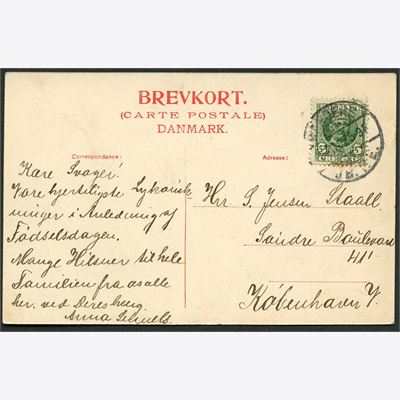 BREVKORT.
(CARTE POSTALE)
DANMARK.
Correspondance:
Adresse:
5 5
ØRE
Kære Svoger.
Vore hjerteligste Lykønsk
ninger i Anledning af
Fødselsdagen.
Mange Hilsner til hele
Familien fra os alle
her. ved Deres heng.
Anna
Hrr. S. Jensen Staall.
Søndre Boulevard
41¹
København V.